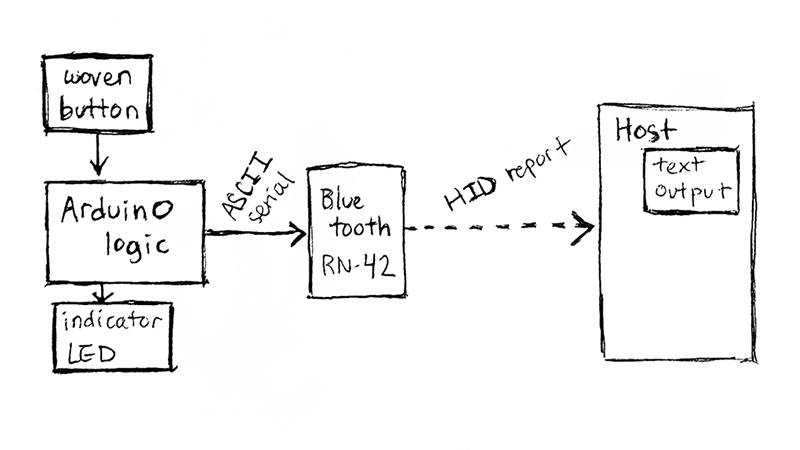 woven
button
Arduino
logic
indicator
LED
ASCII
serial
Blue
tooth
RN-42
HID report
Host
text
output